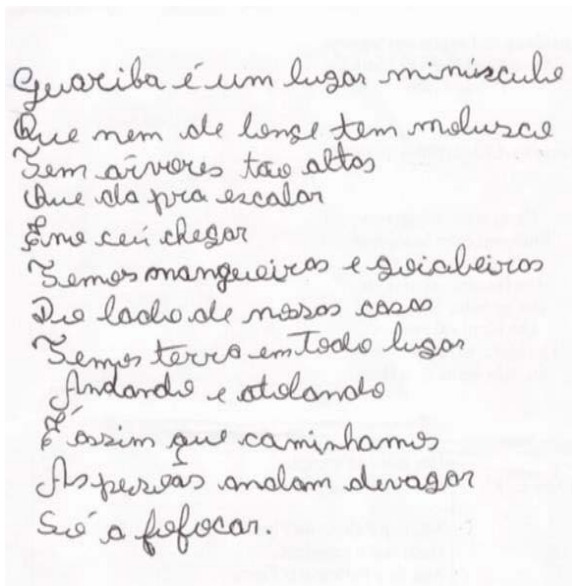 Guariba é um lugar minúsculo
Que nem de longe tem molusco
Tem árvores tão altas
Que da pra escalar
E no céu chegar
Temos mangueiras e goiabeiras
Do lado de nossas casas
Temos terra em todo lugar
Andando e atolando
É assim que caminhamos
As pessoas andam devagar
Só a fofocar.